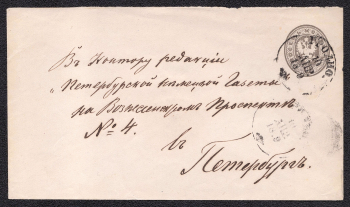 Въ Контору редакціи
"Петербургской нѣмецкой Газеты
на Вознесенскомъ Проспектѣ
№ 4.
въ
Петербургъ.